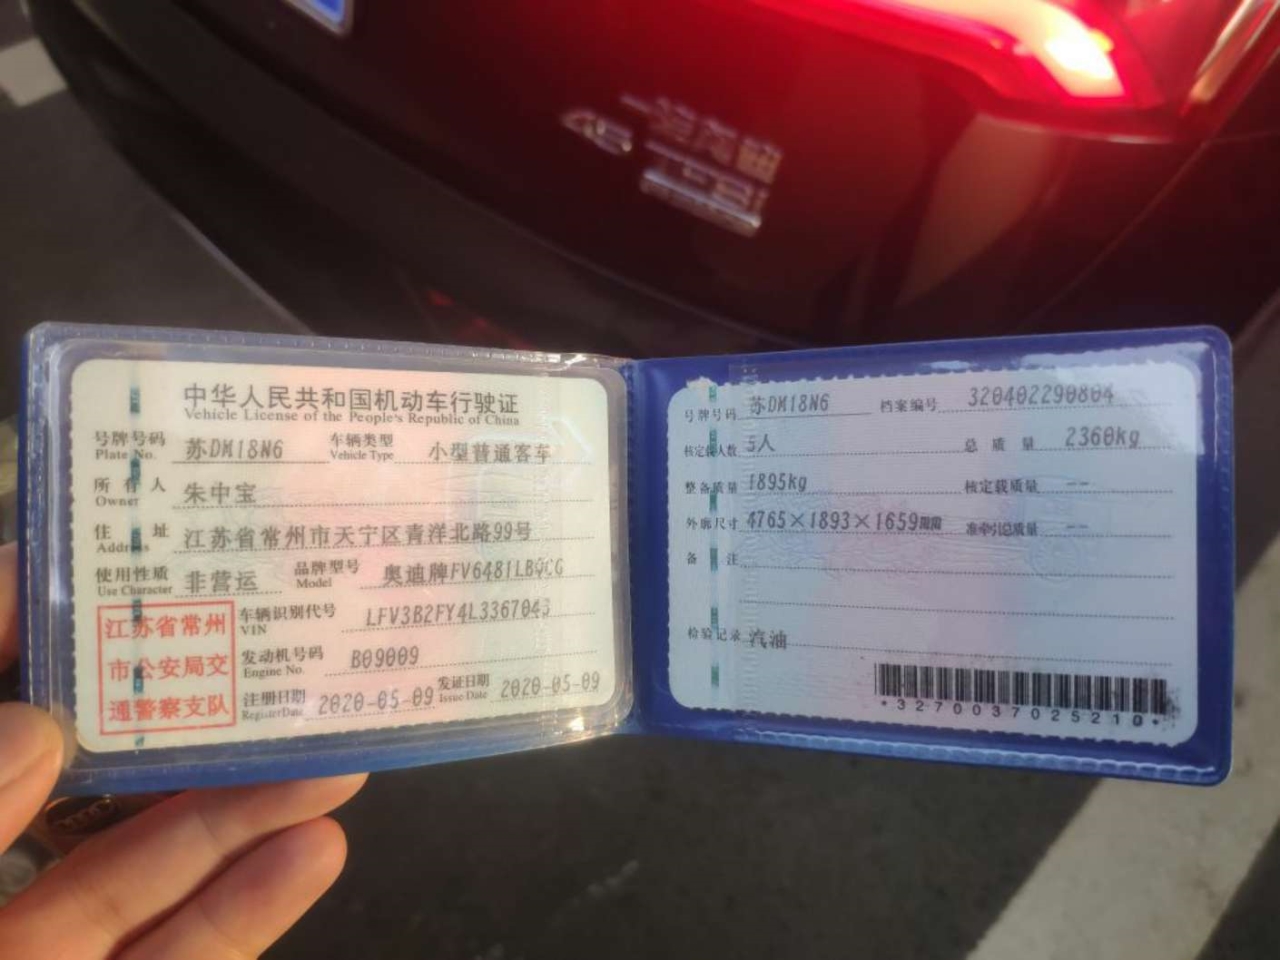 一汽大众
45 TFSI
中华人民共和国机动车行驶证
Vehicle License of the People's Republic of China
号牌号码 苏DM18N6 车辆类型 小型普通客车
Plate No. Vehicle Type
所有人 朱中宝
Owner
住址 江苏省常州市天宁区青洋北路99号
Address
使用性质 非营运 品牌型号 奥迪牌FV6481LBQCG
Use Character Model
江苏省常州
市公安局交
通警察支队
车辆识别代号 LFV3B2FY4L3367043
VIN
发动机号码 B09009
Engine No.
注册日期 2020-05-09 发证日期 2020-05-09
Register Date Issue Date
号牌号码 苏DM18N6 档案编号 320402290804
核定载人数 5人 总质量 2360kg
整备质量 1895kg 核定载质量 --
外廓尺寸 4765×1893×1659mm 准牵引总质量 --
备注
检验记录 汽油
*3270037025210*